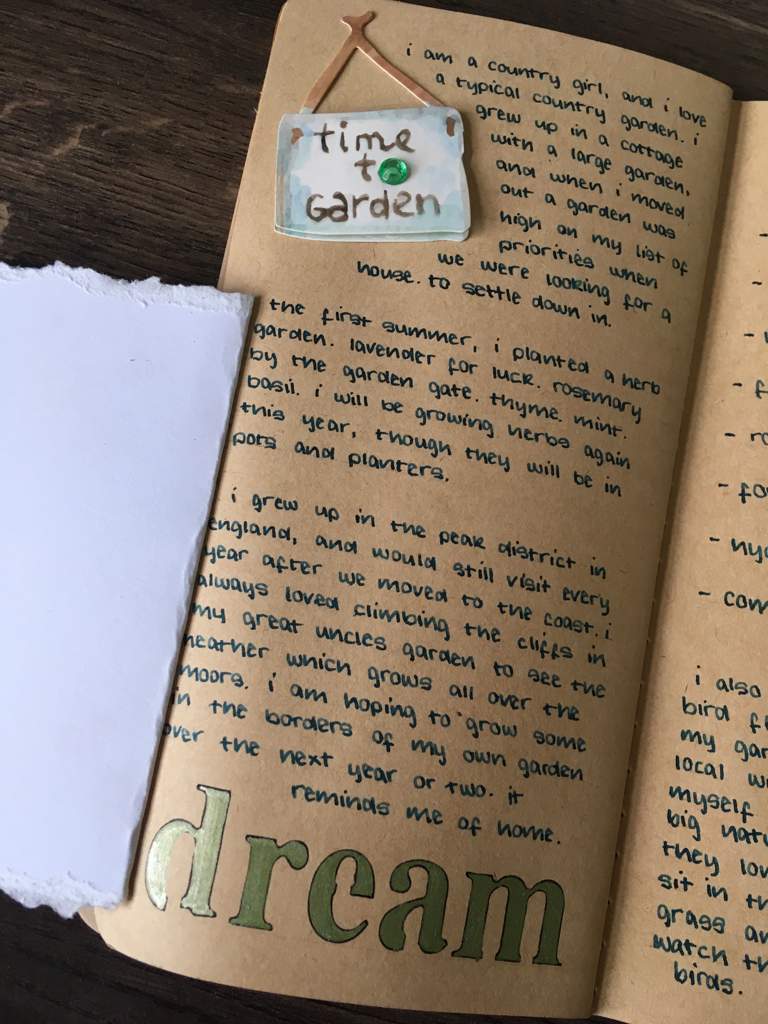 time
to
Garden
i am a country girl, and i love
a typical country garden. i
grew up in a cottage
with a large garden,
and when i moved
out a garden was
high on my list of
priorities when
we were looking for a
house. to settle down in.
the first summer, i planted a herb
garden. lavender for luck. rosemary
by the garden gate. thyme. mint.
basil. i will be growing herbs again
this year, though they will be in
pots and planters.
i grew up in the peak district in
england, and would still visit every
year after we moved to the coast. i
always loved climbing the cliffs in
my great uncles garden to see the
heather which grows all over the
moors. i am hoping to grow some
in the borders of my own garden
over the next year or two. it
reminds me of home.
dream
i also
bird
my
local
myself
big
they
sit in
grass
watch
birds.